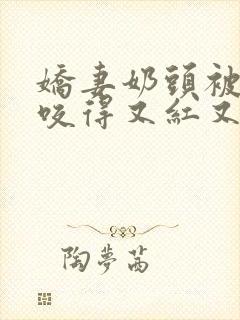 嬌妻奶頭被
咬得又紅又
陶夢茜